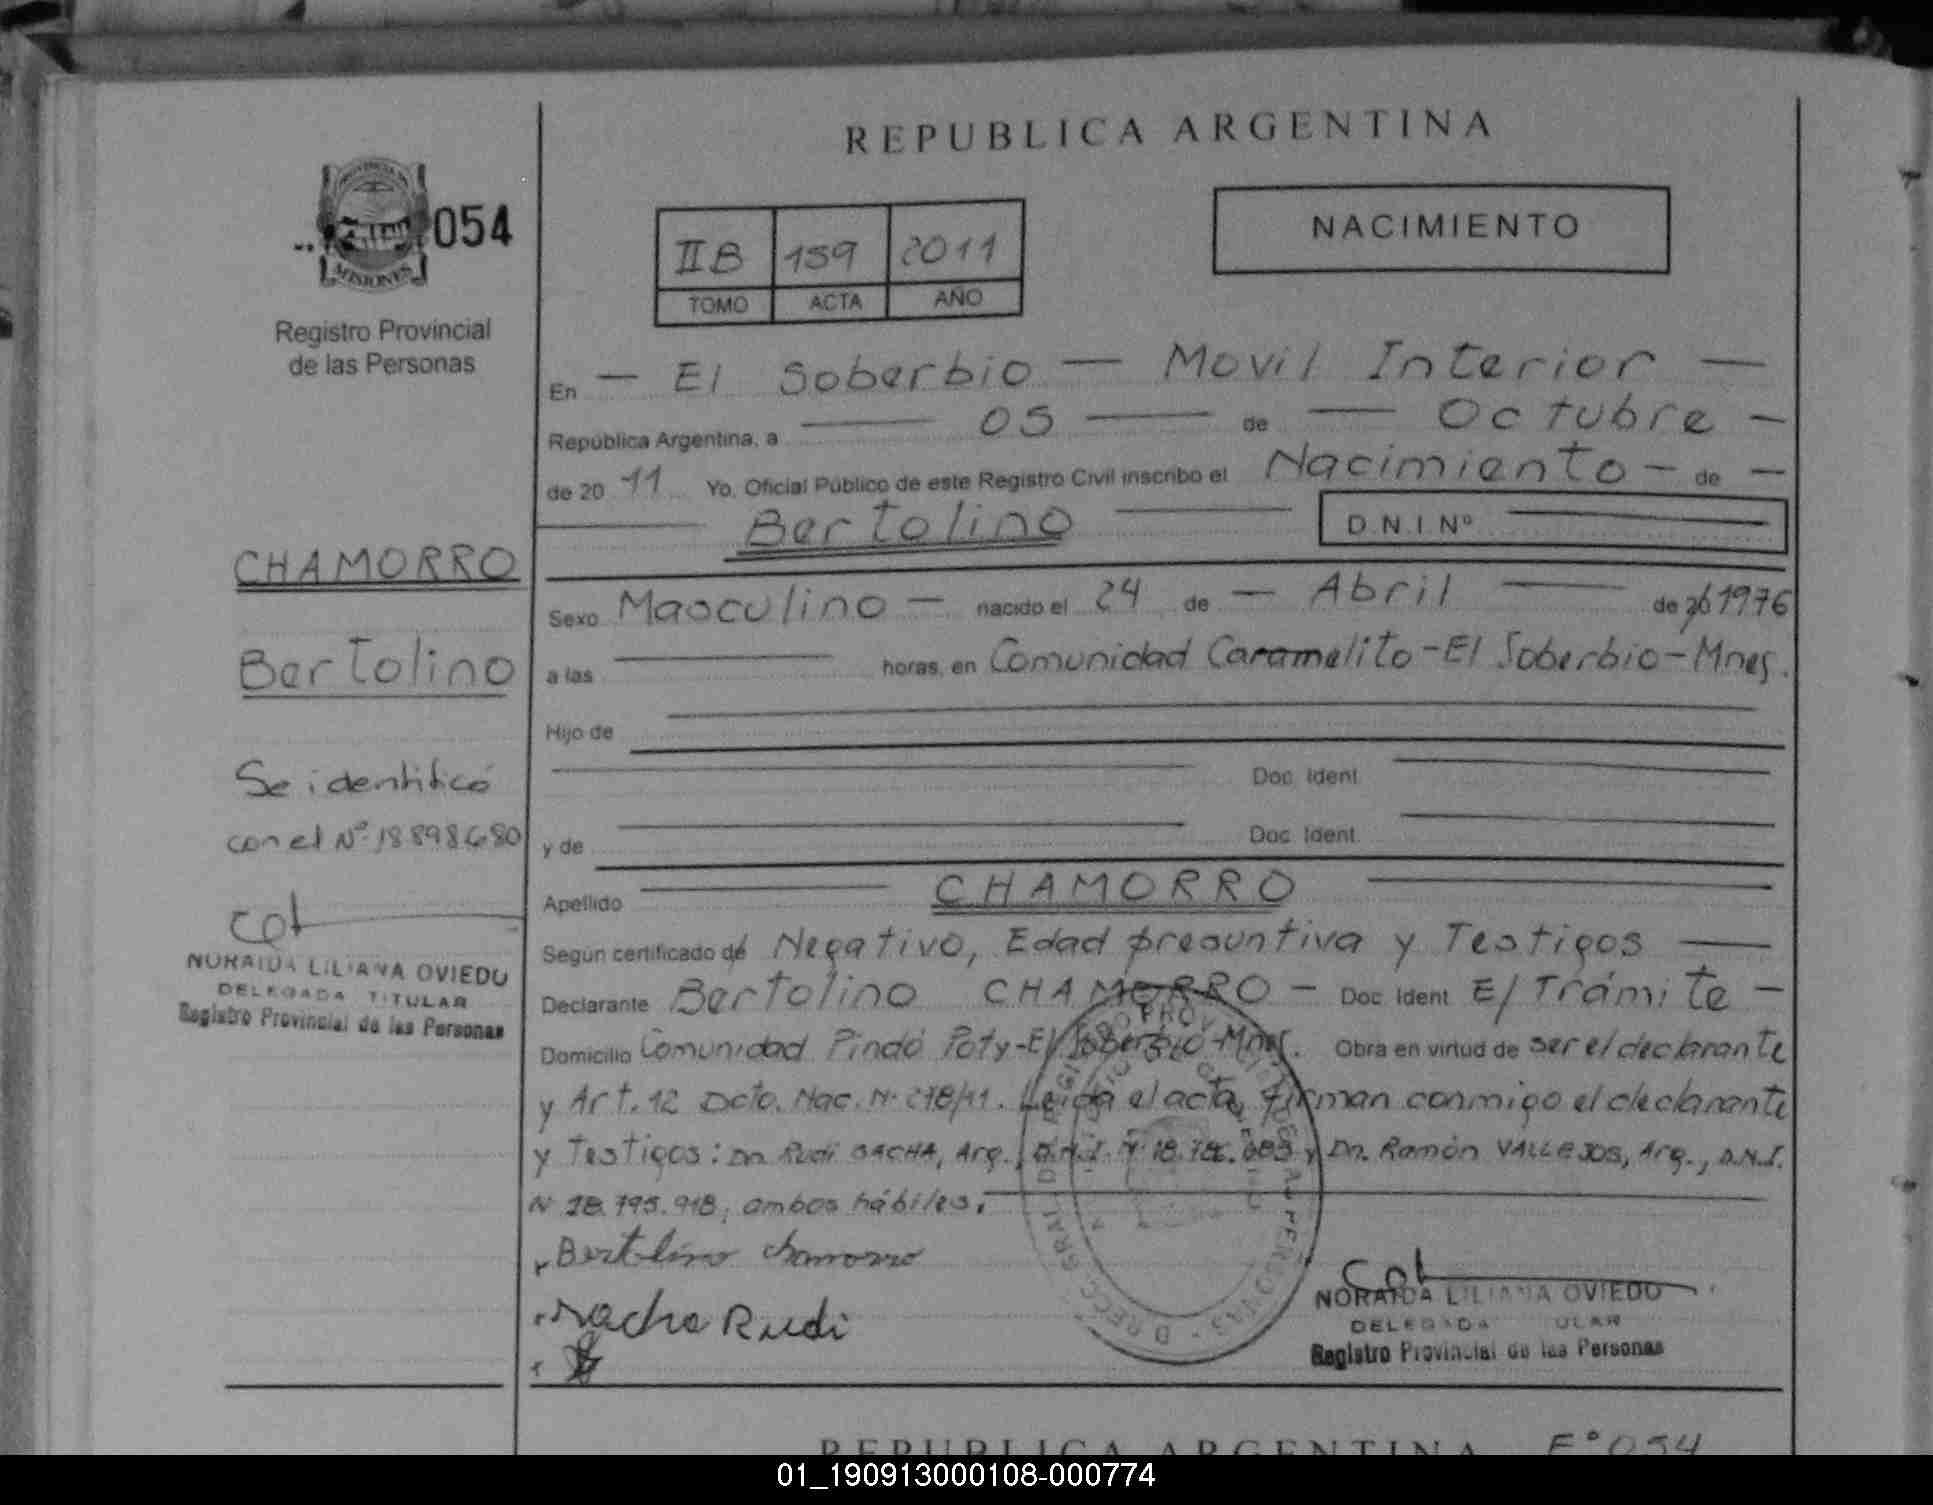 REPUBLICA ARGENTINA
PROVINCIA DE
MISIONES
054
Registro Provincial
de las Personas
IIB 159 2011
TOMO ACTA AÑO
NACIMIENTO
En — El Soberbio — Movil Interior —
República Argentina, a — 05 — de — Octubre —
de 20 11 Yo, Oficial Público de este Registro Civil inscribo el Nacimiento — de —
Bertolino D.N.I. Nº
CHAMORRO
Bertolino
Se identificó
con el Nº 18898680
NORAIDA LILIANA OVIEDO
DELEGADA TITULAR
Registro Provincial de las Personas
Sexo Masculino — nacido el 24 de — Abril — de 1976
a las — horas, en Comunidad Caramelito - El Soberbio - Mnes.
Hijo de
Doc. Ident.
y de Doc. Ident.
Apellido — CHAMORRO —
Según certificado de Negativo, Edad presuntiva y Testigos —
Declarante Bertolino CHAMORRO — Doc. Ident E/Trámite —
Domicilio Comunidad Pindó Poty - El Soberbio - Mnes. Obra en virtud de ser el declarante
y Art. 12 Dcto. Nac. Nº 278/11. Leída el acta, firman conmigo el declarante
y Testigos: Dn. Rudi SACHA, Arg., D.N.I. Nº y Dn. Ramón VALLEJOS, Arg., D.N.I.
Nº 28.795.918, ambos hábiles.
Bertolino Chamorro
Rudi
NORAIDA LILIANA OVIEDO
DELEGADA ULAR
Registro Provincial de las Personas
REPUBLICA ARGENTINA Fº 054
01_190913000108-000774